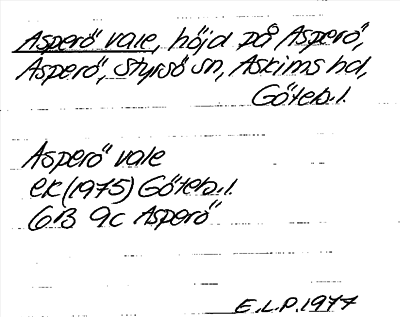 Asperö vale, höjd på Asperö,
Asperö, Styrsö sn, Askims hd,
Göteb. l.
Asperö vale
ek (1975) Göteb. l.
6B 9c Asperö
E.L.P. 1977